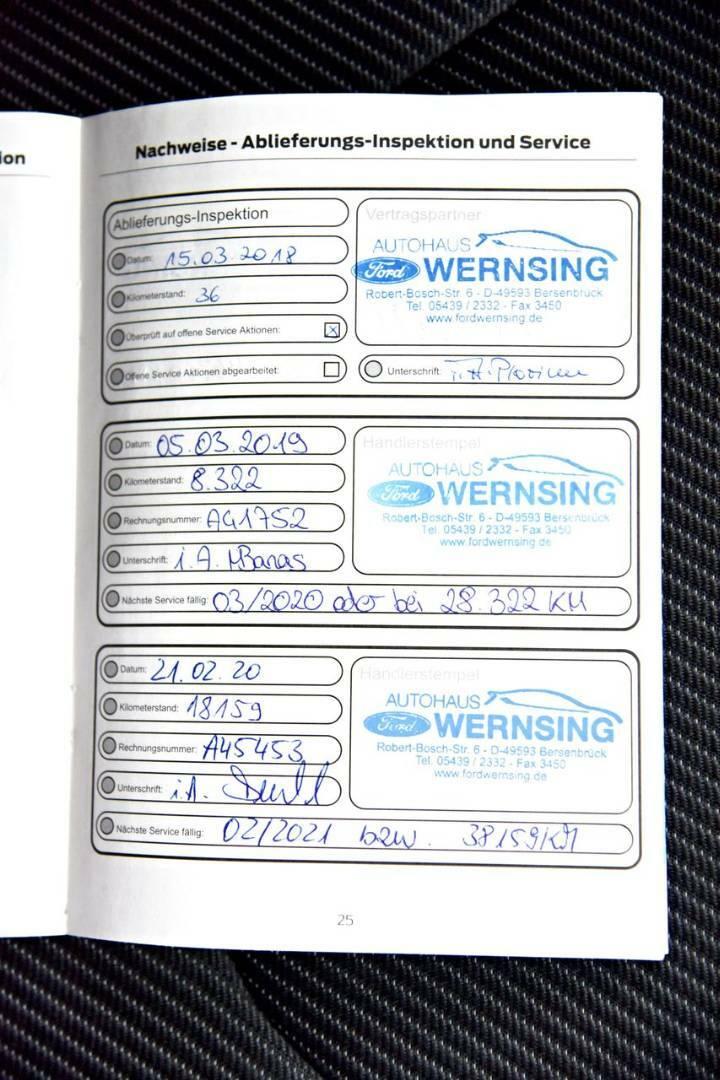 ion
Nachweise - Ablieferungs-Inspektion und Service
Ablieferungs-Inspektion
Datum: 15.03.2018
Kilometerstand: 36
Überprüft auf offene Service Aktionen: ☒
Offene Service Aktionen abgearbeitet: ☐
Vertragspartner
AUTOHAUS
Ford WERNSING
Robert-Bosch-Str. 6 - D-49593 Bersenbrück
Tel. 05439 / 2332 - Fax 3450
www.fordwernsing.de
Unterschrift:
Datum: 05.03.2019
Kilometerstand: 8.322
Rechnungsnummer: A41752
Unterschrift: i.A. MBanas
Händlerstempel
AUTOHAUS
Ford WERNSING
Robert-Bosch-Str. 6 - D-49593 Bersenbrück
Tel. 05439 / 2332 - Fax 3450
www.fordwernsing.de
Nächste Service fällig: 03/2020 oder bei 28.322 KM
Datum: 21.02.20
Kilometerstand: 18159
Rechnungsnummer: A45453
Unterschrift: i.A.
Händlerstempel
AUTOHAUS
Ford WERNSING
Robert-Bosch-Str. 6 - D-49593 Bersenbrück
Tel. 05439 / 2332 - Fax 3450
www.fordwernsing.de
Nächste Service fällig: 02/2021 bzw. 38159KM
25